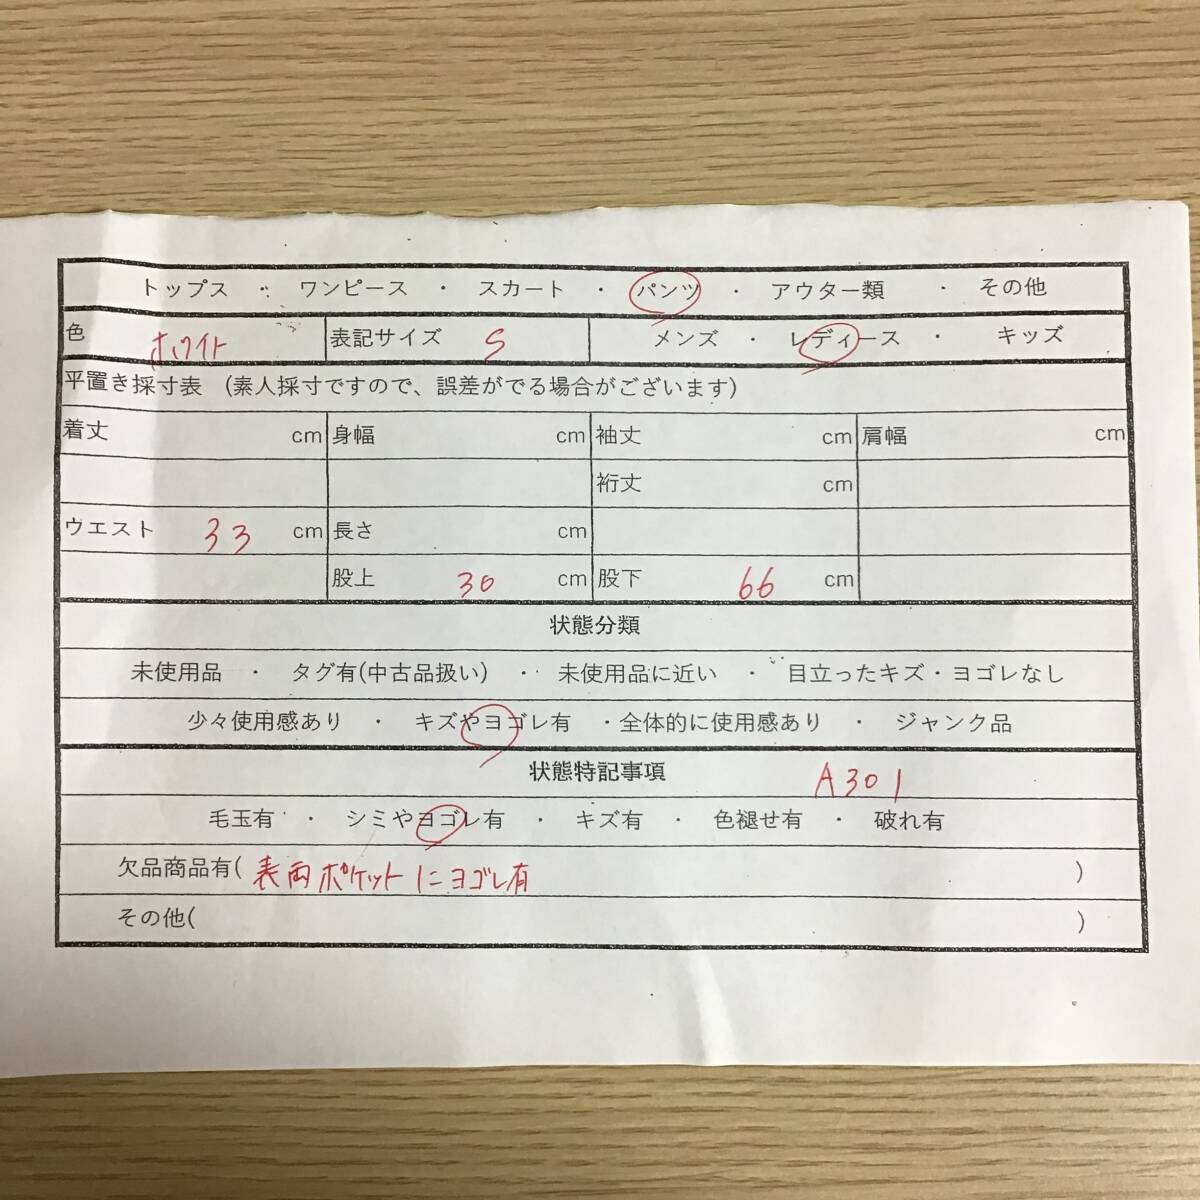 トップス ・ ワンピース ・ スカート ・ パンツ ・ アウター類 ・ その他
色 ホワイト 表記サイズ S メンズ ・ レディース ・ キッズ
平置き採寸表 (素人採寸ですので、誤差がでる場合がございます)
着丈 cm 身幅 cm 袖丈 cm 肩幅 cm
裄丈 cm
ウエスト 33 cm 長さ cm
股上 30 cm 股下 66 cm
状態分類
未使用品 ・ タグ有(中古品扱い) ・ 未使用品に近い ・ 目立ったキズ・ヨゴレなし
少々使用感あり ・ キズやヨゴレ有 ・全体的に使用感あり ・ ジャンク品
状態特記事項 A301
毛玉有 ・ シミやヨゴレ有 ・ キズ有 ・ 色褪せ有 ・ 破れ有
欠品商品有( 表両ポケットにヨゴレ有 )
その他( )